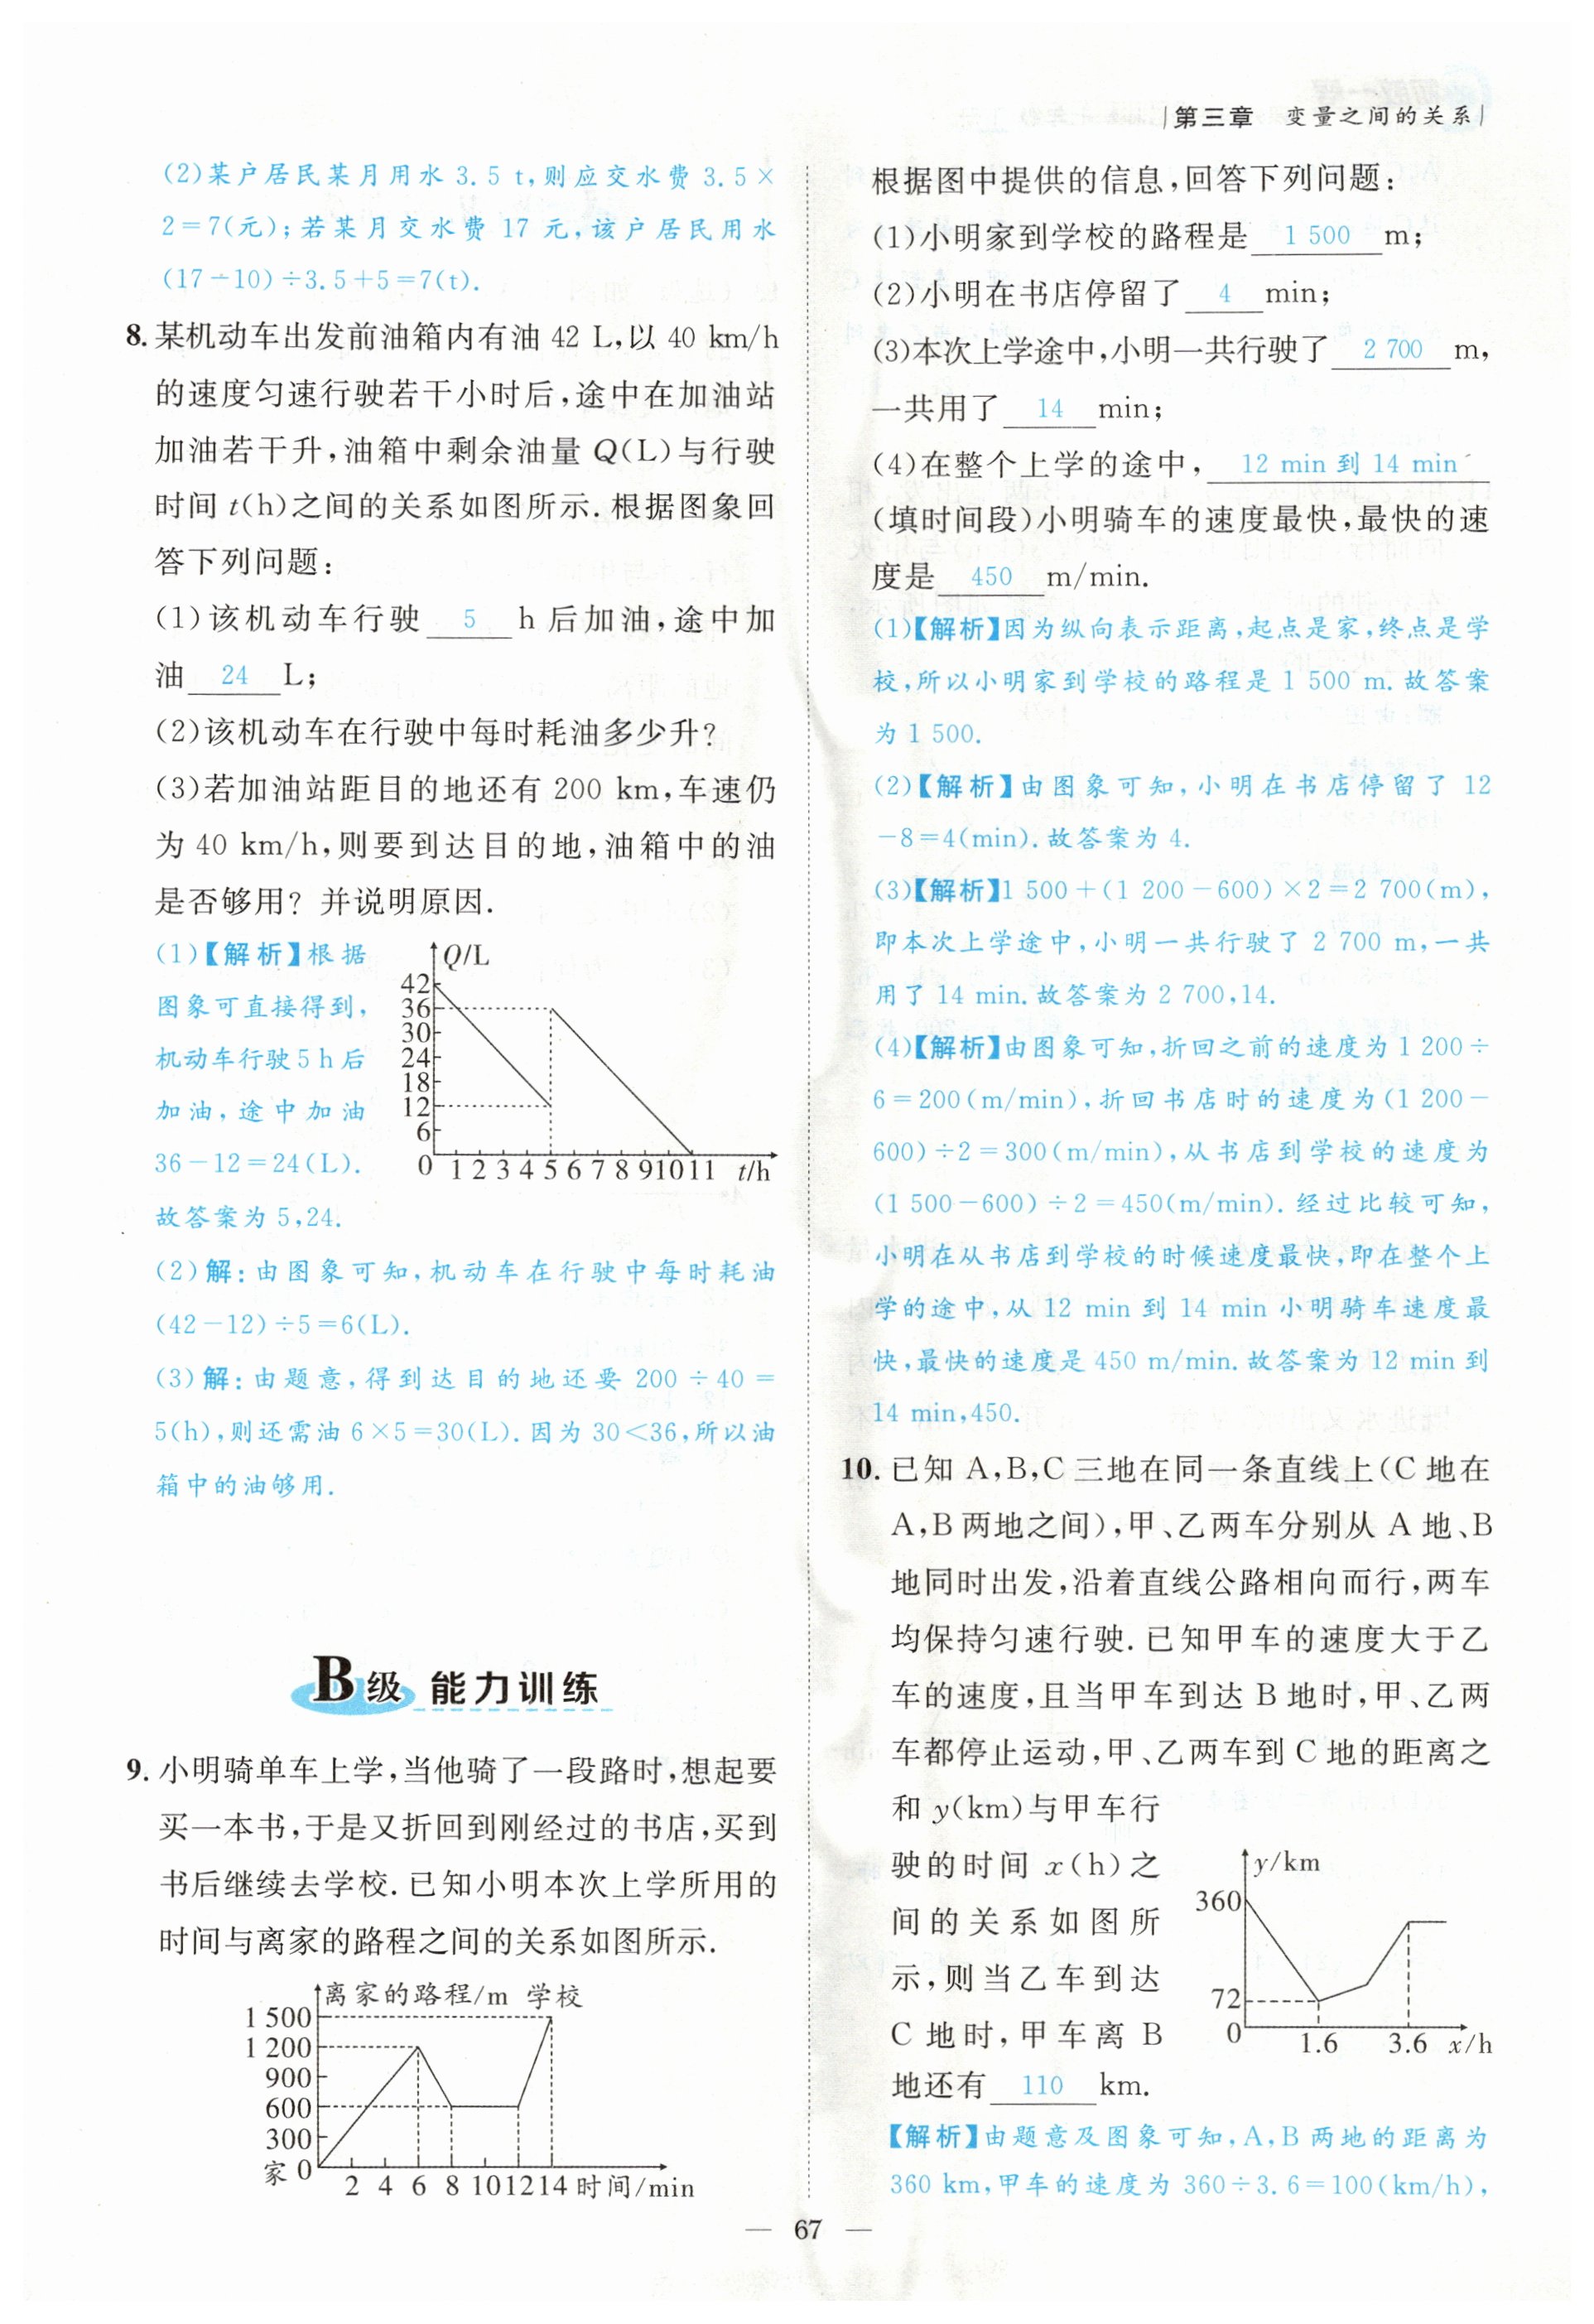 第三章 变量之间的关系
(2)某户居民某月用水 3.5 t,则应交水费 3.5×
2=7(元);若某月交水费 17 元,该户居民用水
(17-10)÷3.5+5=7(t).
8. 某机动车出发前油箱内有油 42 L,以 40 km/h
的速度匀速行驶若干小时后,途中在加油站
加油若干升,油箱中剩余油量 Q(L)与行驶
时间 t(h)之间的关系如图所示.根据图象回
答下列问题:
(1)该机动车行驶 5 h 后加油,途中加
油 24 L;
(2)该机动车在行驶中每时耗油多少升?
(3)若加油站距目的地还有 200 km,车速仍
为 40 km/h,则要到达目的地,油箱中的油
是否够用? 并说明原因.
(1)【解析】根据
图象可直接得到,
机动车行驶5 h后
加油,途中加油
36-12=24(L).
故答案为 5,24.
Q/L
42
36
30
24
18
12
6
0 1 2 3 4 5 6 7 8 9 10 11 t/h
(2)解:由图象可知,机动车在行驶中每时耗油
(42-12)÷5=6(L).
(3)解:由题意,得到达目的地还要 200÷40=
5(h),则还需油 6×5=30(L).因为 30<36,所以油
箱中的油够用.
B级 能力训练
9. 小明骑单车上学,当他骑了一段路时,想起要
买一本书,于是又折回到刚经过的书店,买到
书后继续去学校.已知小明本次上学所用的
时间与离家的路程之间的关系如图所示.
离家的路程/m 学校
1 500
1 200
900
600
300
家 0
2 4 6 8 10 12 14 时间/min
根据图中提供的信息,回答下列问题:
(1)小明家到学校的路程是 1 500 m;
(2)小明在书店停留了 4 min;
(3)本次上学途中,小明一共行驶了 2 700 m,
一共用了 14 min;
(4)在整个上学的途中, 12 min 到 14 min
(填时间段)小明骑车的速度最快,最快的速
度是 450 m/min.
(1)【解析】因为纵向表示距离,起点是家,终点是学
校,所以小明家到学校的路程是 1 500 m.故答案
为 1 500.
(2)【解析】由图象可知,小明在书店停留了 12
-8=4(min).故答案为 4.
(3)【解析】1 500+(1 200-600)×2=2 700(m),
即本次上学途中,小明一共行驶了 2 700 m,一共
用了 14 min.故答案为 2 700,14.
(4)【解析】由图象可知,折回之前的速度为 1 200÷
6=200(m/min),折回书店时的速度为(1 200-
600)÷2=300(m/min),从书店到学校的速度为
(1 500-600)÷2=450(m/min).经过比较可知,
小明在从书店到学校的时候速度最快,即在整个上
学的途中,从 12 min 到 14 min 小明骑车速度最
快,最快的速度是 450 m/min.故答案为 12 min 到
14 min,450.
10. 已知 A,B,C 三地在同一条直线上(C 地在
A,B 两地之间),甲、乙两车分别从 A 地、B
地同时出发,沿着直线公路相向而行,两车
均保持匀速行驶.已知甲车的速度大于乙
车的速度,且当甲车到达 B 地时,甲、乙两
车都停止运动,甲、乙两车到 C 地的距离之
和 y(km)与甲车行
驶的时间 x(h)之
间的关系如图所
示,则当乙车到达
C 地时,甲车离 B
地还有 110 km.
y/km
360
72
0 1.6 3.6 x/h
【解析】由题意及图象可知,A,B 两地的距离为
360 km,甲车的速度为 360÷3.6=100(km/h),
— 67 —